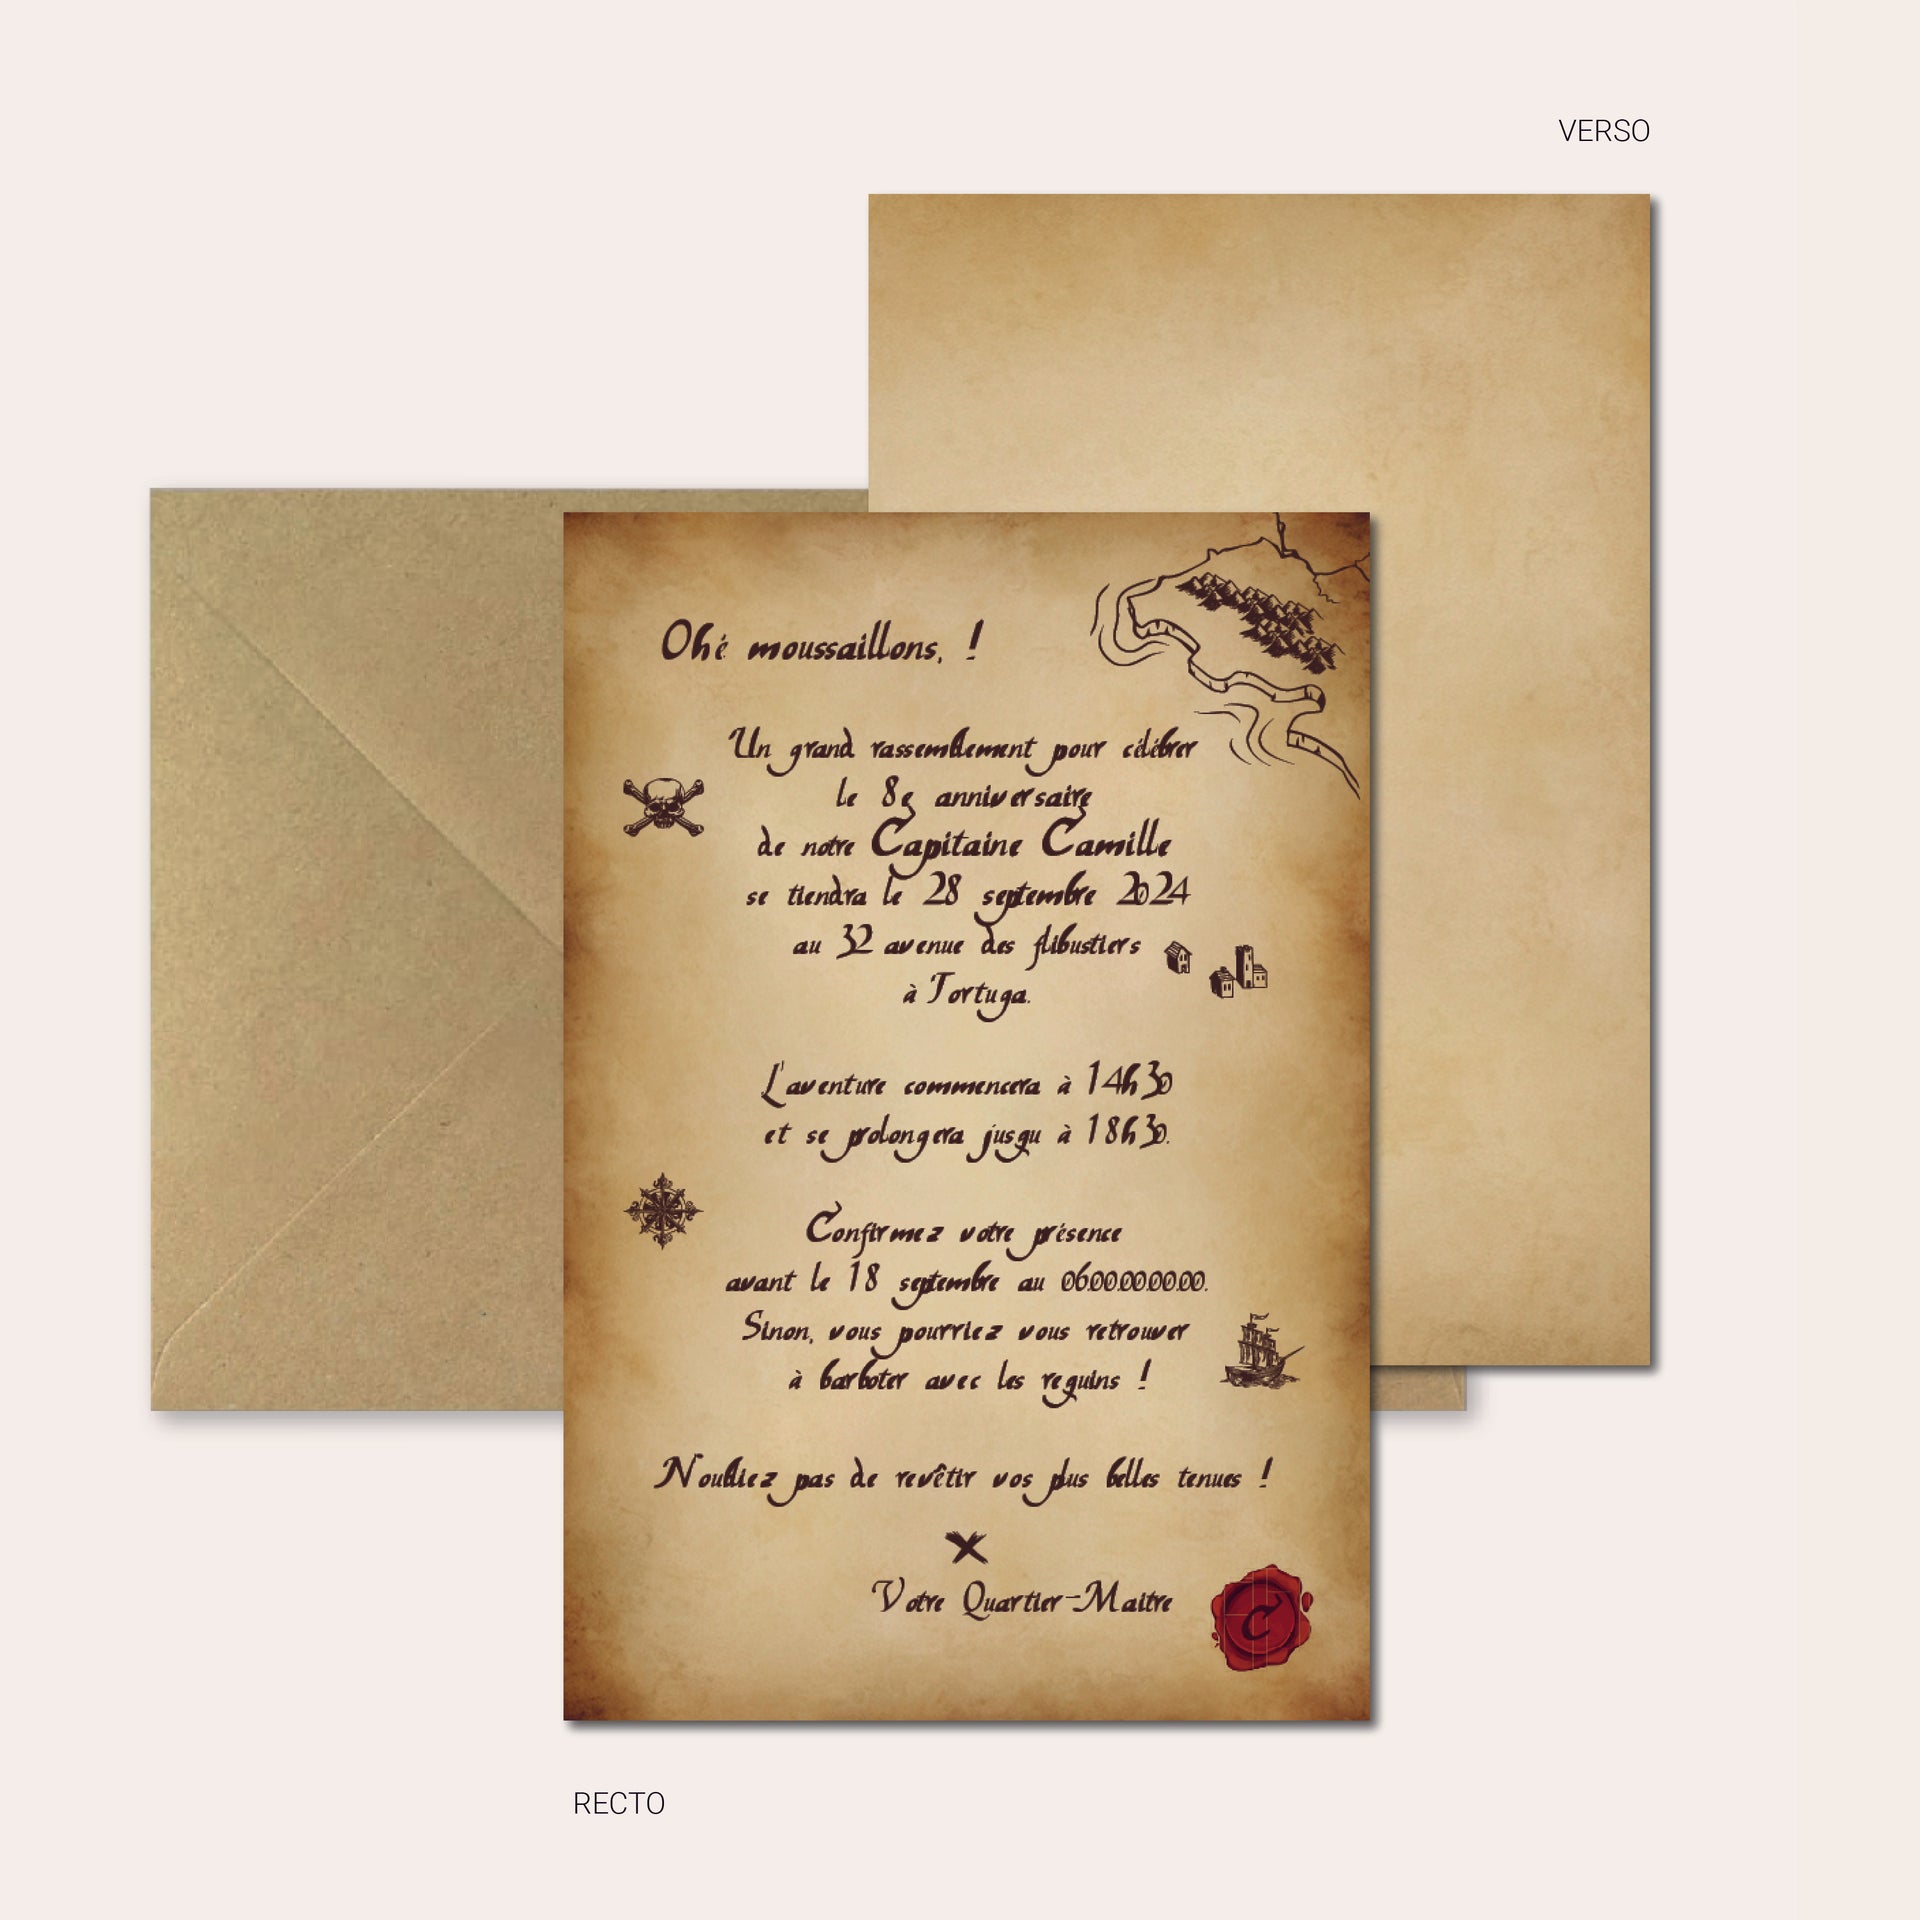 VERSO
Ohé moussaillons, !
Un grand rassemblement pour célébrer
le 8e anniversaire
de notre Capitaine Camille
se tiendra le 28 septembre 2024
au 32 avenue des flibustiers
à Tortuga.
L'aventure commencera à 14h30
et se prolongera jusqu à 18h30.
Confirmez votre présence
avant le 18 septembre au 06.00.00.00.00.
Sinon, vous pourriez vous retrouver
à barboter avec les requins !
Noubliez pas de revêtir vos plus belles tenues !
Votre Quartier-Maitre
C
RECTO